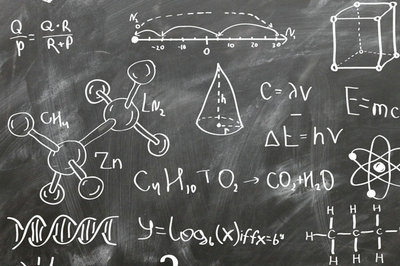 Q/P = Q·R/R+P
N₀ N₁
-20 -10 0 10 20 30
CH₄
LN₂
Zn
h
r
C = λV
E=mc
ΔE = hV
C₄H₁₀ + O₂ → CO₂+H₂O
y=Log₆(x) iff x=6ʸ
H H H
H C C C
H H H
?